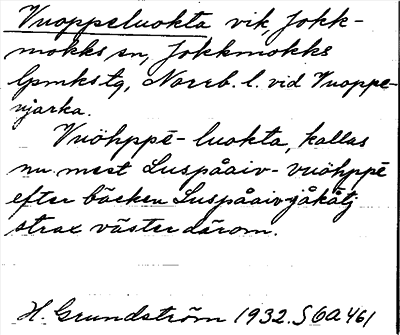 Vuoppeluokta vik, Jokk-
mokks sn, Jokkmokks
lpmks tg, Norrb. l. vid Vuoppe-
njarka.
Vuöhppē-luokta, kallas
nu mest Luspåaiv-vuöhppē
efter bäcken Luspåaivjåkåtj
strax väster därom.
H. Grundström 1932. S 6a 461